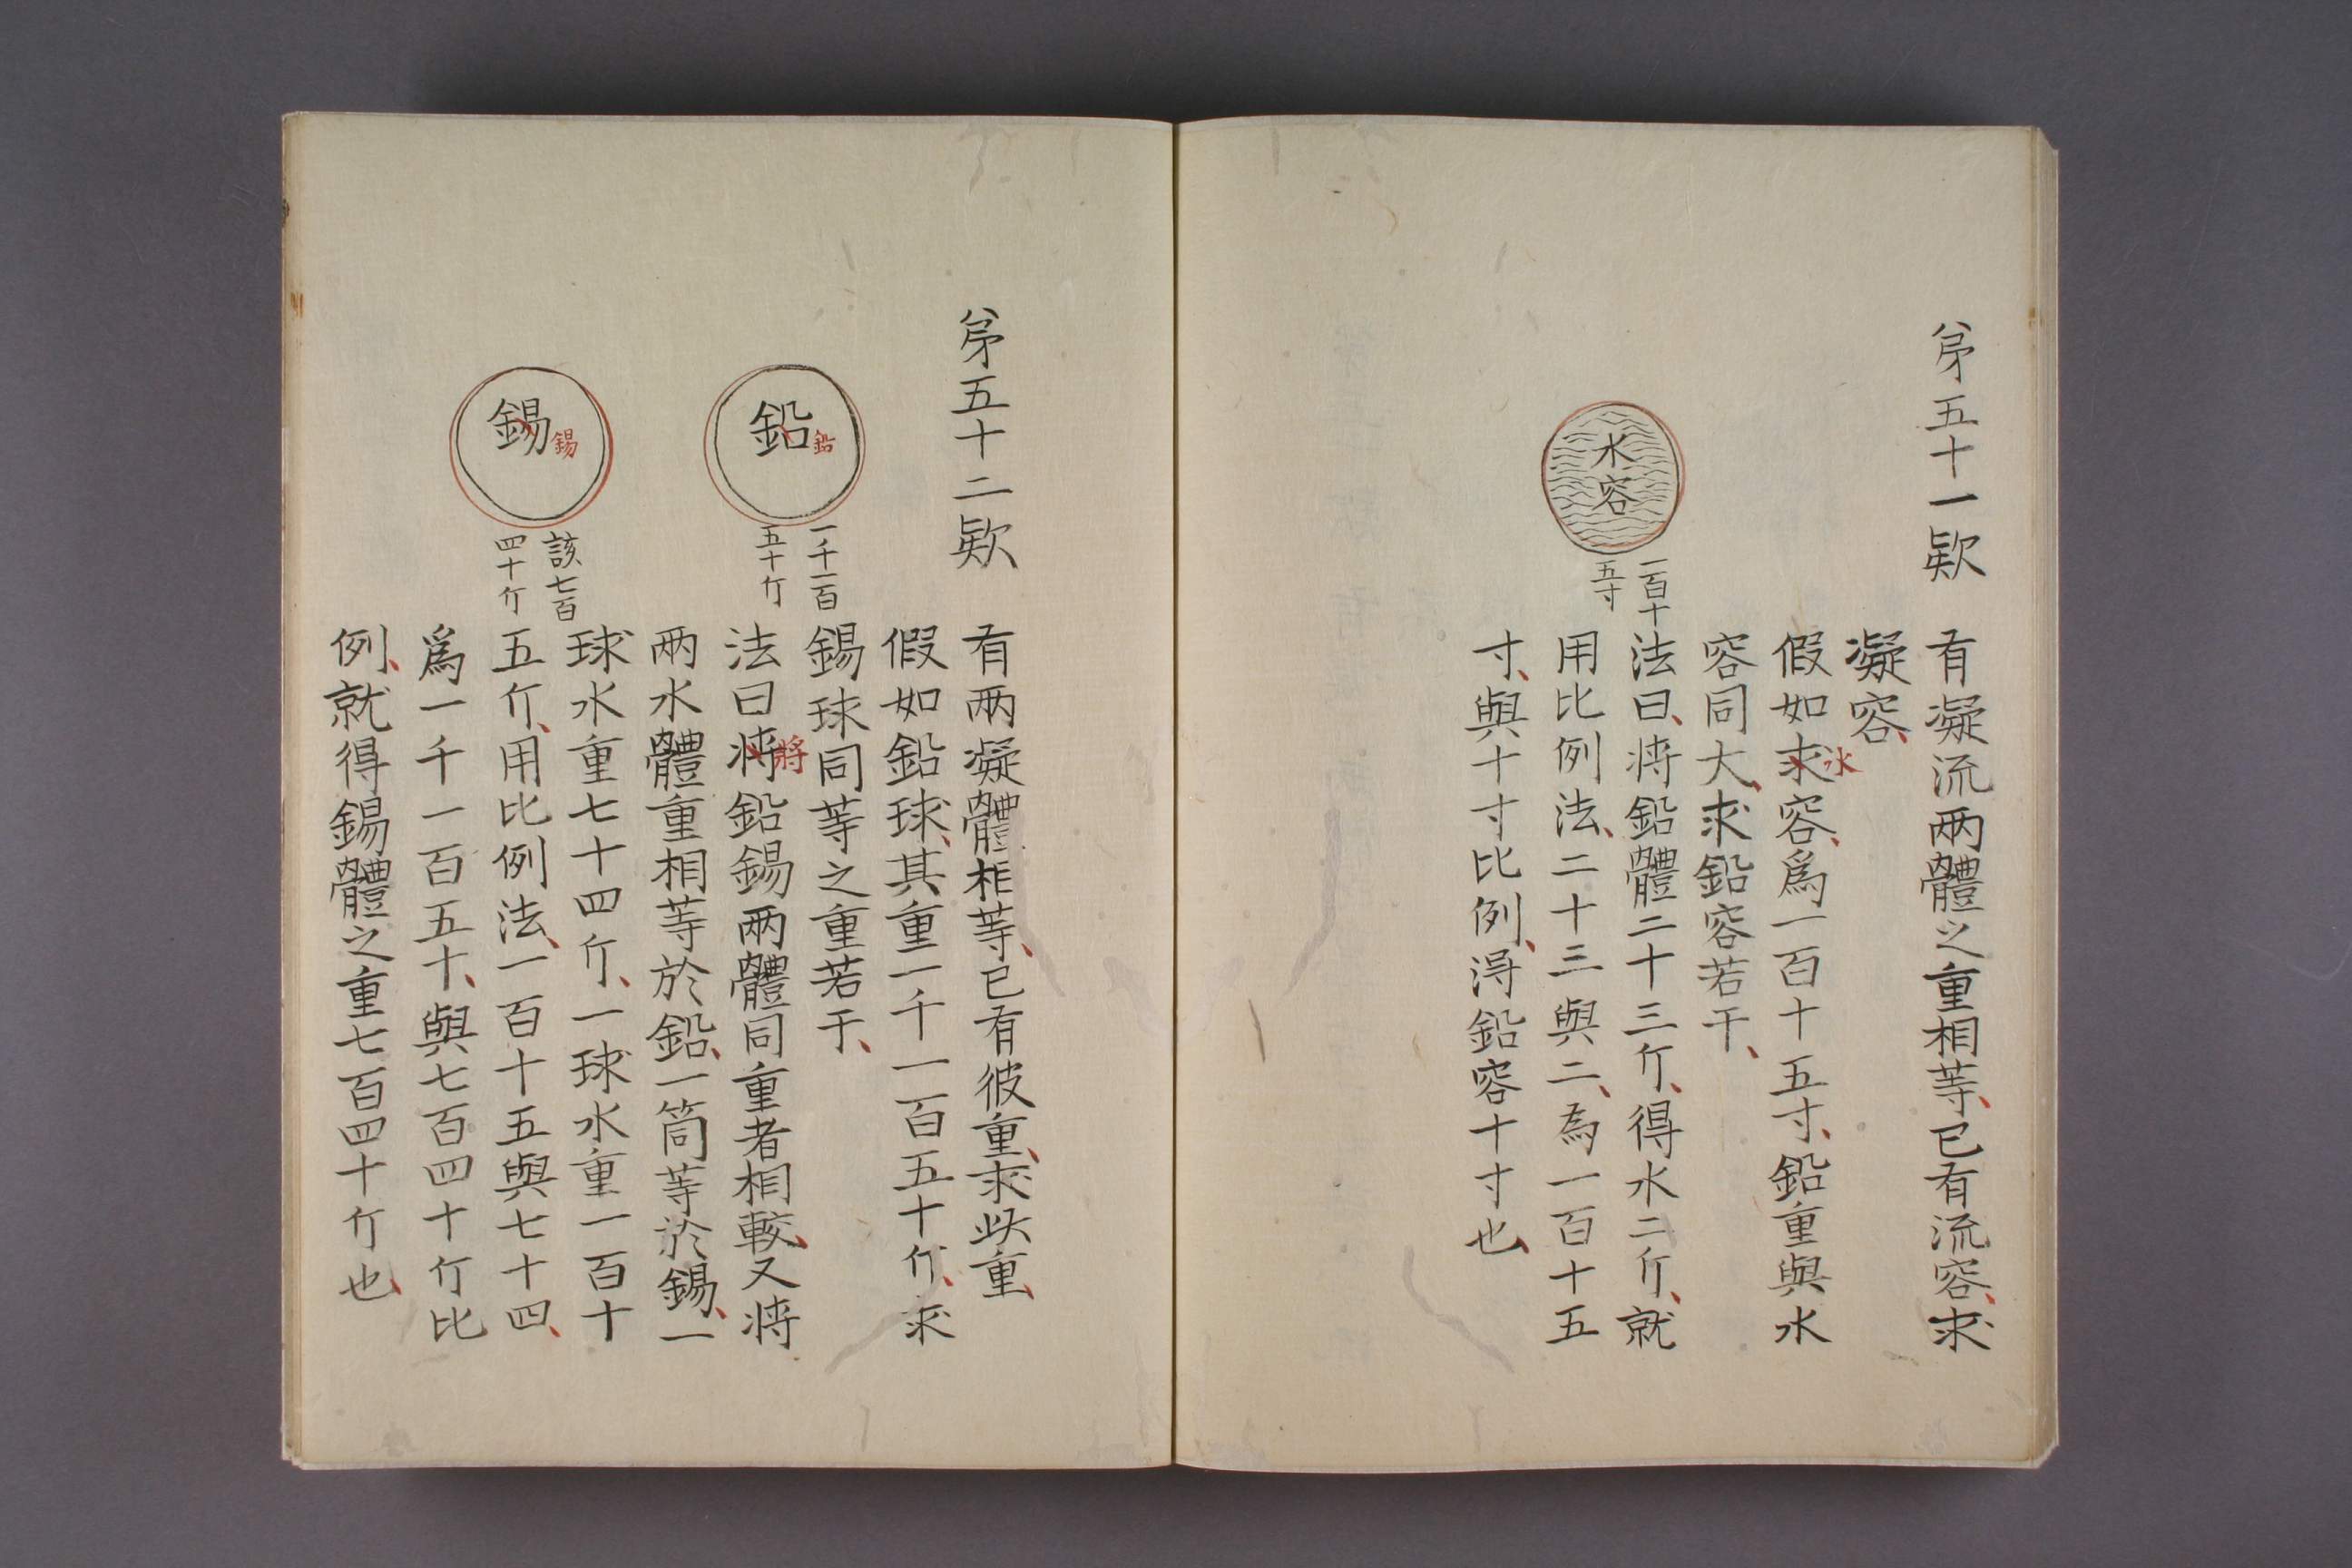 第五十一欵
有凝流两體之重相等、已有流容、求
凝容、
假如求容、爲一百十五寸、鉛重與水
水
容同大、求鉛容若干、
水容
一百十
五寸
法曰、将鉛體二十三斤、得水二斤、就
用比例法、二十三與二、為一百十五
寸、與十寸比例、淂鉛容十寸也、
第五十二欵
有两凝體相等、已有彼重、求此重、
假如鉛球、其重一千一百五十斤、求
錫球同等之重若干、
鉛
鉛
一千一百
五十斤
法曰将鉛錫两體同重者相較、又将
將
两水體重相等於鉛、一筒等於錫、一
球水重七十四斤、一球水重一百十
錫
錫
該七百
四十斤
五斤、用比例法、一百十五與七十四、
爲一千一百五十、與七百四十斤比
例、就得錫體之重七百四十斤也、